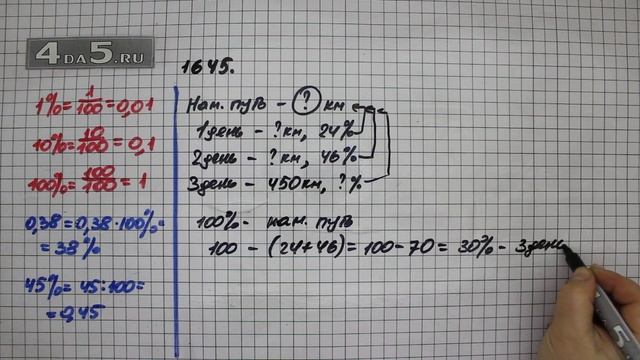 4DA5.RU
1645.
1% = 1/100 = 0,01
10% = 10/100 = 0,1
100% = 100/100 = 1
0,38 = 0,38 · 100% =
= 38%
45% = 45 : 100 =
= 0,45
Нам. путь – ? км
1 день – ? км, 24%
2 день – ? км, 46%
3 день – 450 км, ? %
100% – нам. путь
100 – (24+46) = 100 – 70 = 30% – 3 день
5